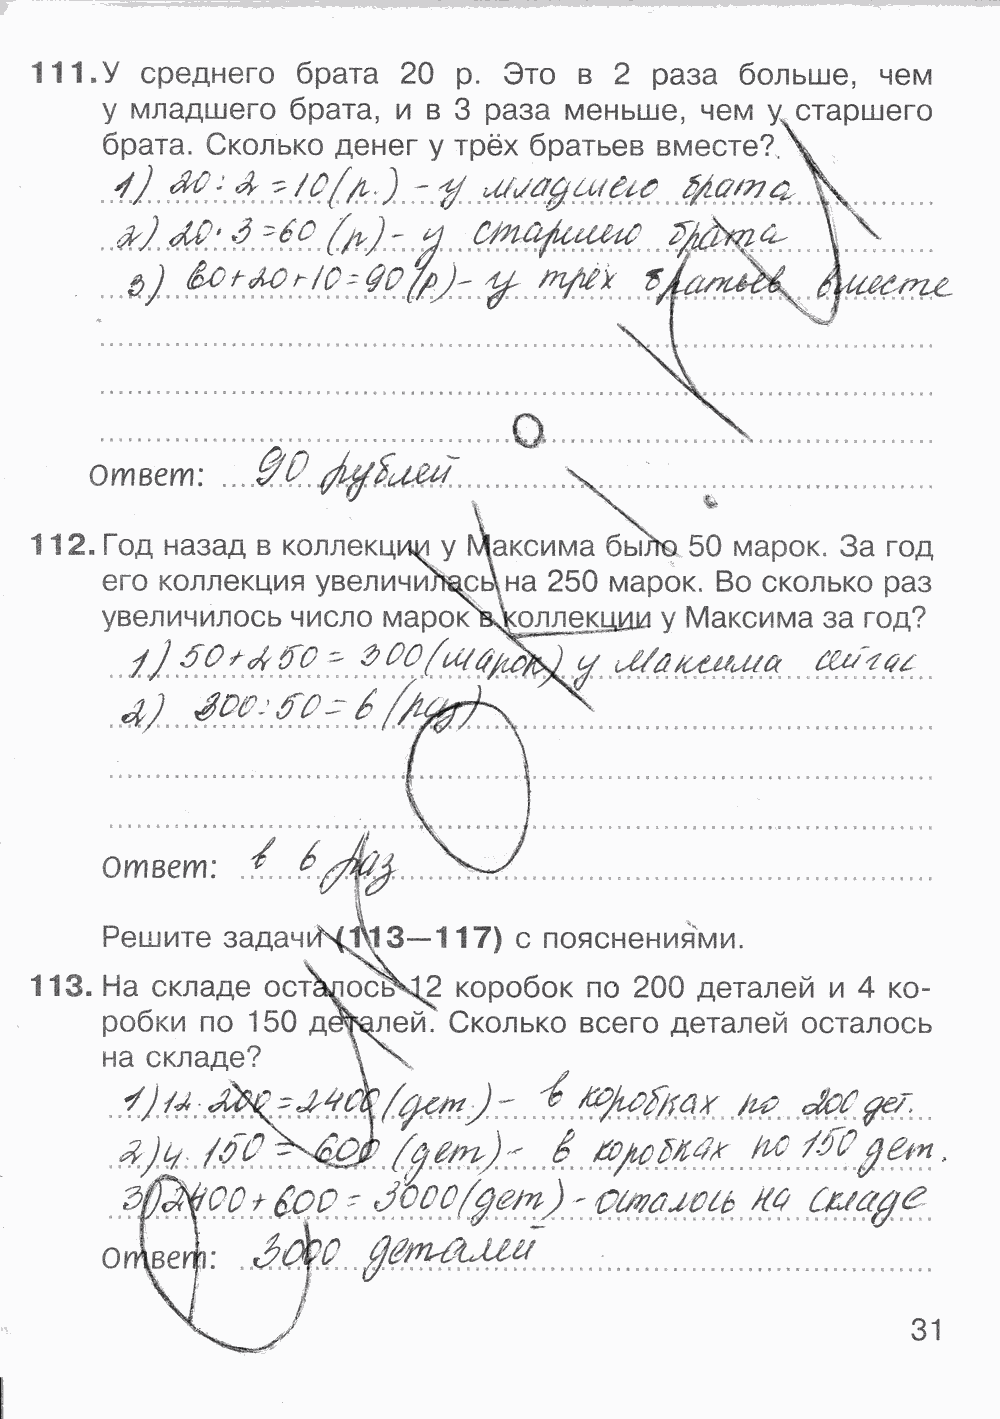 111. У среднего брата 20 р. Это в 2 раза больше, чем
у младшего брата, и в 3 раза меньше, чем у старшего
брата. Сколько денег у трёх братьев вместе?
1) 20:2=10(р.) - у младшего брата
2) 20·3=60 (р) - у старшего брата
3) 60+20+10=90(р) - у трёх братьев вместе
Ответ: 90 рублей
112. Год назад в коллекции у Максима было 50 марок. За год
его коллекция увеличилась на 250 марок. Во сколько раз
увеличилось число марок в коллекции у Максима за год?
1) 50+250=300(марок) у Максима сейчас
2) 300:50=6 (раз)
Ответ: в 6 раз
Решите задачи (113—117) с пояснениями.
113. На складе осталось 12 коробок по 200 деталей и 4 ко-
робки по 150 деталей. Сколько всего деталей осталось
на складе?
1) 12·200=2400(дет.) - в коробках по 200 дет.
2) 4·150=600 (дет) - в коробках по 150 дет.
3) 2400+600=3000(дет) - осталось на складе
Ответ: 3000 деталей
31